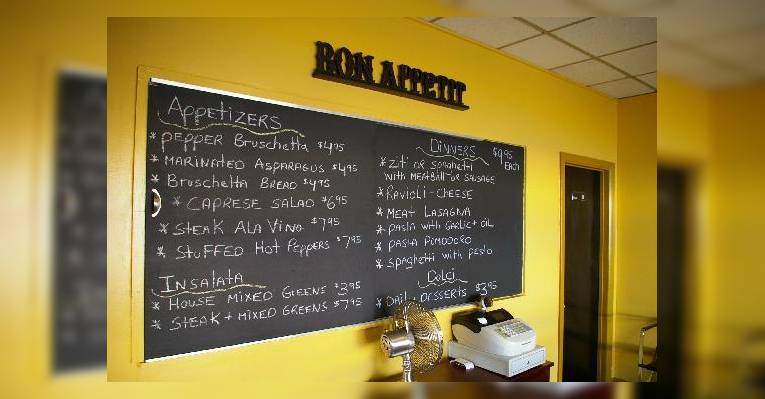 BON APPETIT
APPETIZERS
* PEPPER BRUSCHETTA $4.95
* MARINATED ASPARAGUS $4.95
* BRUSCHETTA BREAD $4.95
* CAPRESE SALAD $6.95
* STEAK ALA VINO $7.95
* STUFFED HOT PEPPERS $7.95
INSALATA
* HOUSE MIXED GREENS $3.95
* STEAK + MIXED GREENS $7.95
DINNERS $9.95
EACH
* ZITI OR SPAGHETTI
WITH MEATBALL OR SAUSAGE
* RAVIOLI - CHEESE
* MEAT LASAGNA
* PASTA WITH GARLIC + OIL
* PASTA POMODORO
* SPAGHETTI WITH PESTO
DOLCI
* DAILY DESSERTS $3.95